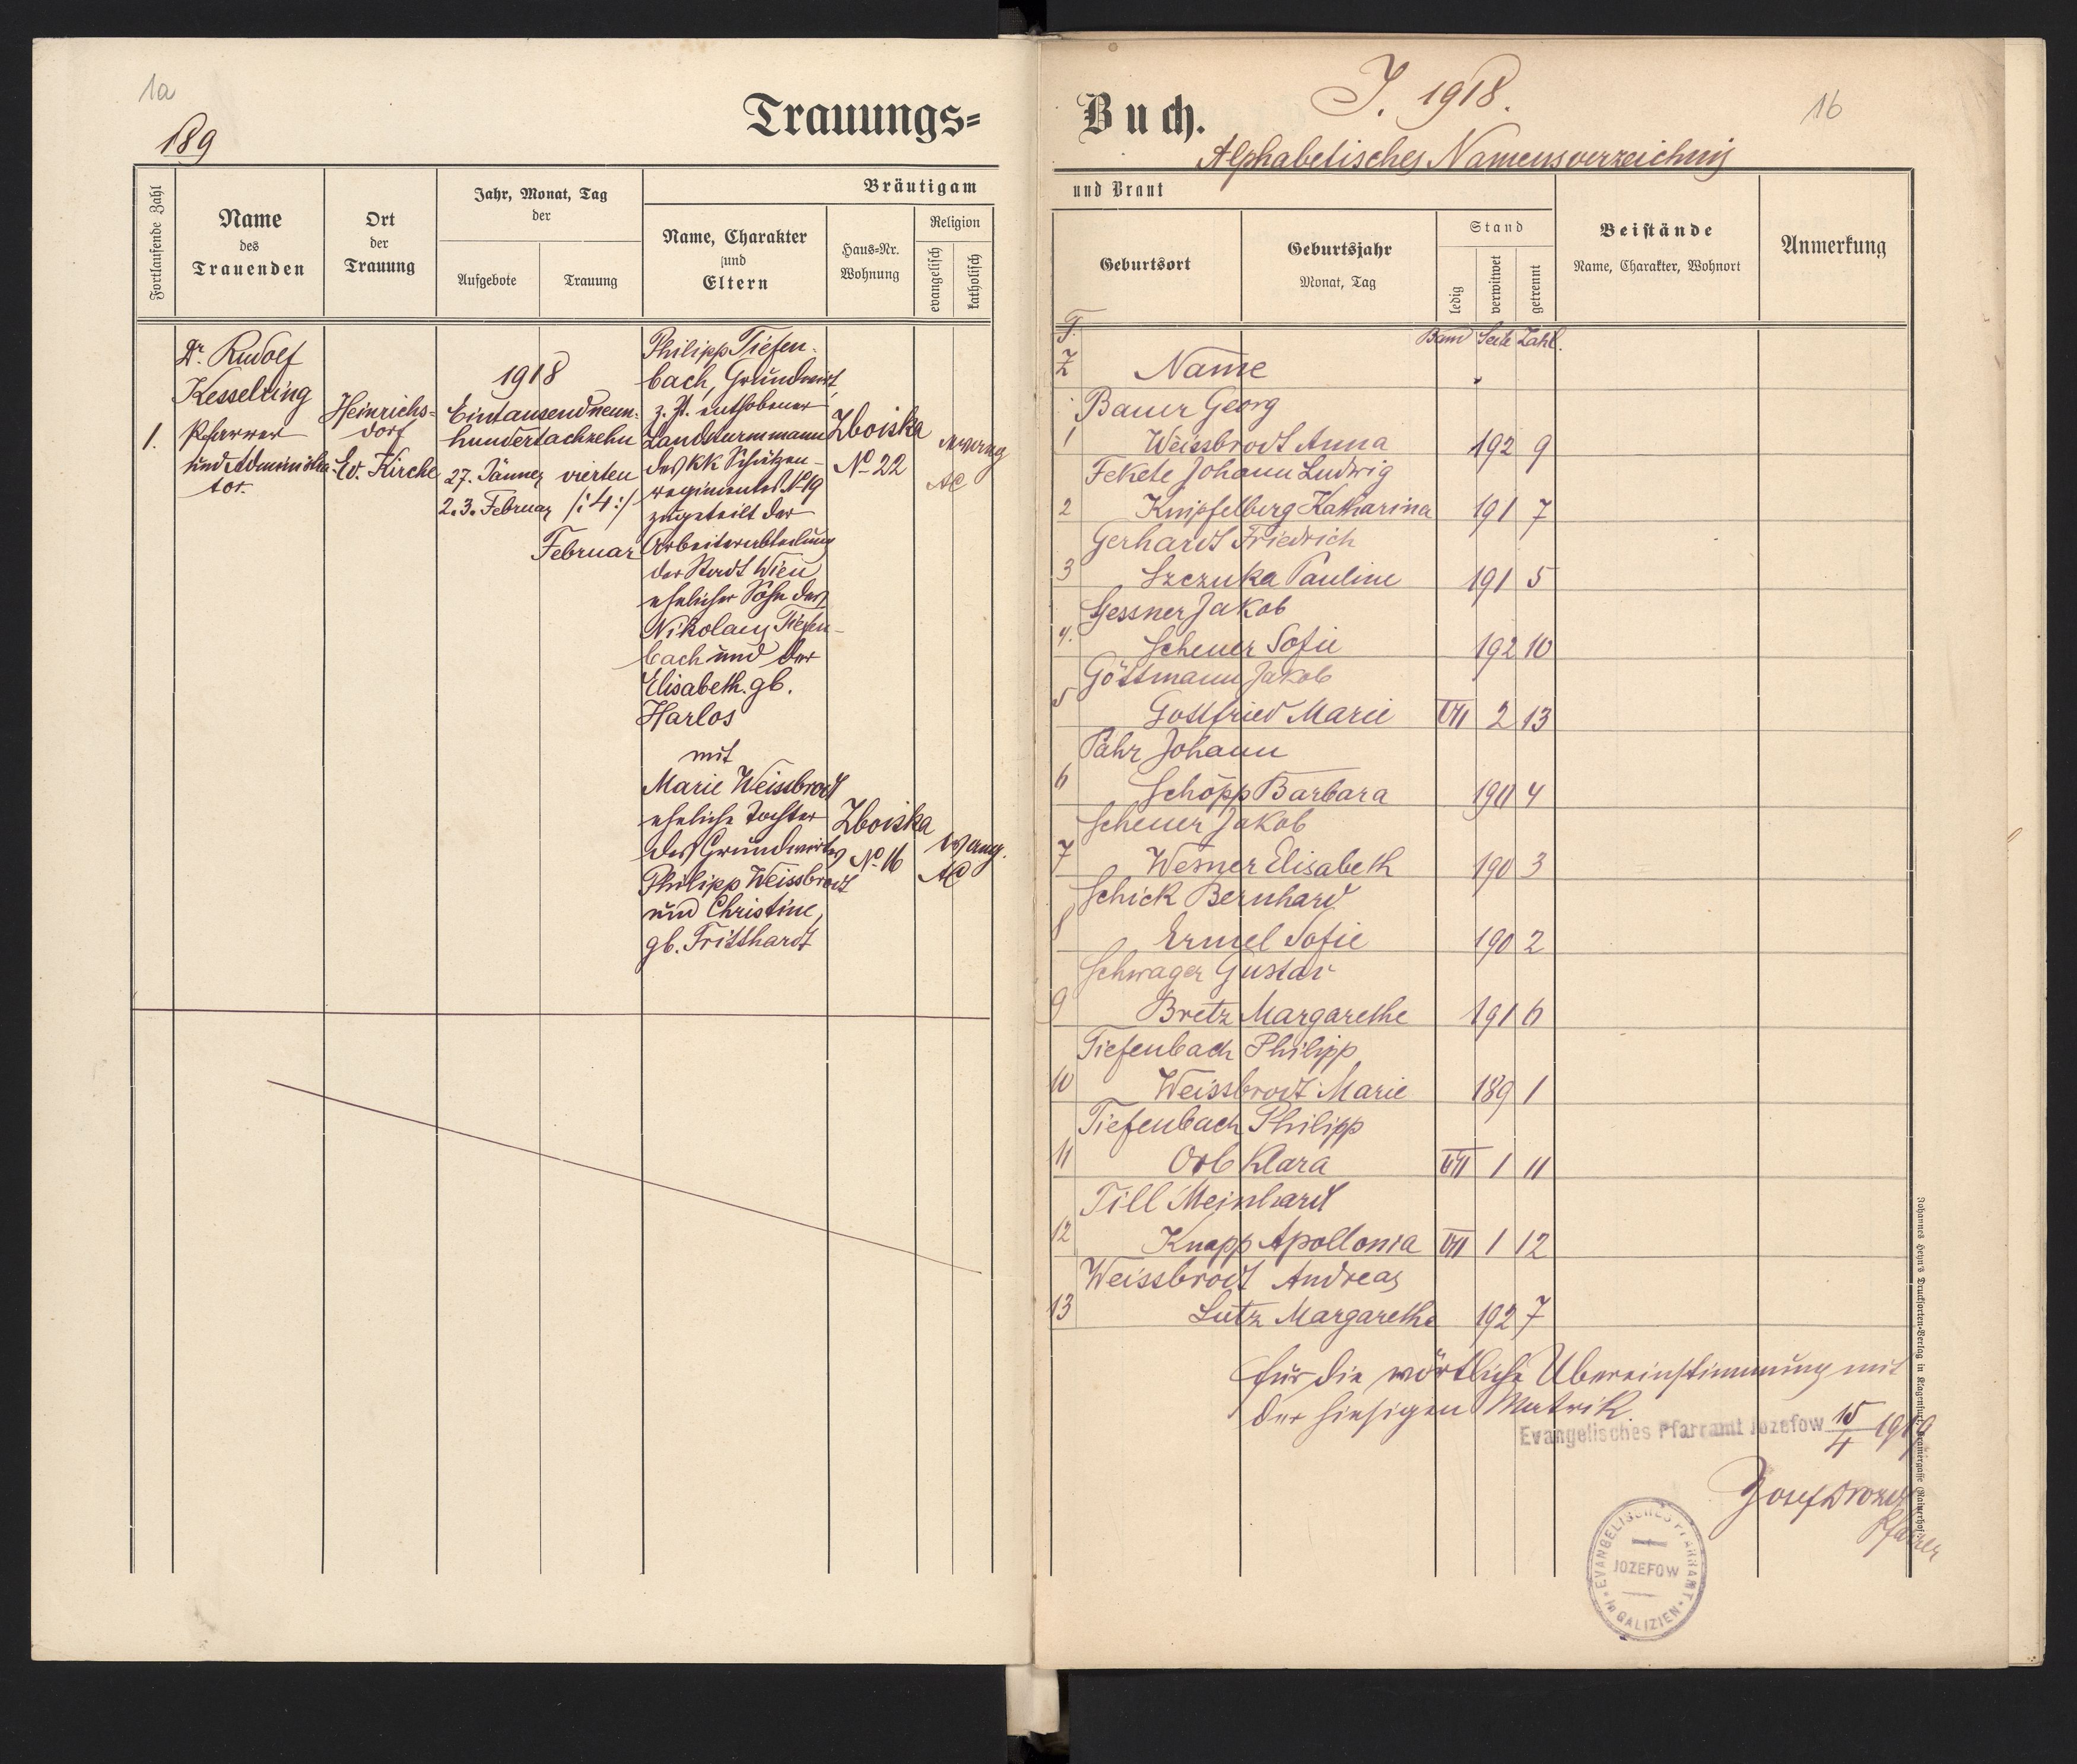 1a
189
Trauungs=
Fortlaufende Zahl
Name
des
Trauenden
Ort
der
Trauung
Jahr, Monat, Tag
der
Aufgebote
Trauung
Bräutigam
Name, Charakter
und
Eltern
Haus=Nr.
Wohnung
Religion
evangelisch
katholisch
1.
Dr. Rudolf
Kesselring
Pfarrer
und Administra-
tor.
Heinrichs=
dorf
Ev. Kirche
1918
Eintausendneun-
hundertachzehn
27. Jänner
2.3. Februar
vierten
/:4:/
Februar
Philipp Tiefen-
bach, Grundwirt,
z. Zt. enthobener
Landsturmmann
des KK Schützen-
regimentes No 19
zugeteilt der
Arbeiterabteilung
der Stadt Wien
ehelicher Sohn des
Nikolaus Tiefen-
bach und der
Elisabeth. gb.
Harlos
mit
Marie Weissbrodt
eheliche Tochter
des Grundwirtes
Philipp Weissbrodt
und Christine,
gb. Fritthardt
Zboiska
No 22
evang
AC
Zboiska
No 16
evang.
AC
Buch.
J. 1918.
16
Alphabetisches Namensverzeichnis
und Braut
Geburtsort
Geburtsjahr
Monat, Tag
Stand
ledig
verwitwet
getrennt
Beistände
Name, Charakter, Wohnort
Anmerkung
Band Seite Zahl.
Name
Bauer Georg
1 Weissbrodt Anna 192 9
Fekete Johann Ludwig
2 Knipfelberg Katharina 191 7
Gerhardt Friedrich
3 Szczuka Pauline 191 5
Gessner Jakob
4. Scheuer Sofie 192 10
Göttmann Jakob
5 Gottfried Marie VII 2 13
Pahr Johann
6 Schöpp Barbara 190 4
Scheuer Jakob
7 Wesner Elisabeth 190 3
Schick Bernhard
8 Ermel Sofie 190 2
Schwager Gustav
9 Bretz Margarethe 191 6
Tiefenbach Philipp
10 Weissbrodt Marie 189 1
Tiefenbach Philipp
11 Orb Klara VII 1 11
Till Meinhard
12 Knapp Apollonia VII 1 12
Weissbrodt Andreas
13 Lutz Margarethe 192 7
für die wörtliche Übereinstimmung mit
der hiesigen Matrik.
Evangelisches Pfarramt Jozefow 15/4 1919
Josef Drozd
Pfarrer
EVANGELISCHES PFARRAMT
JOZEFOW
in GALIZIEN